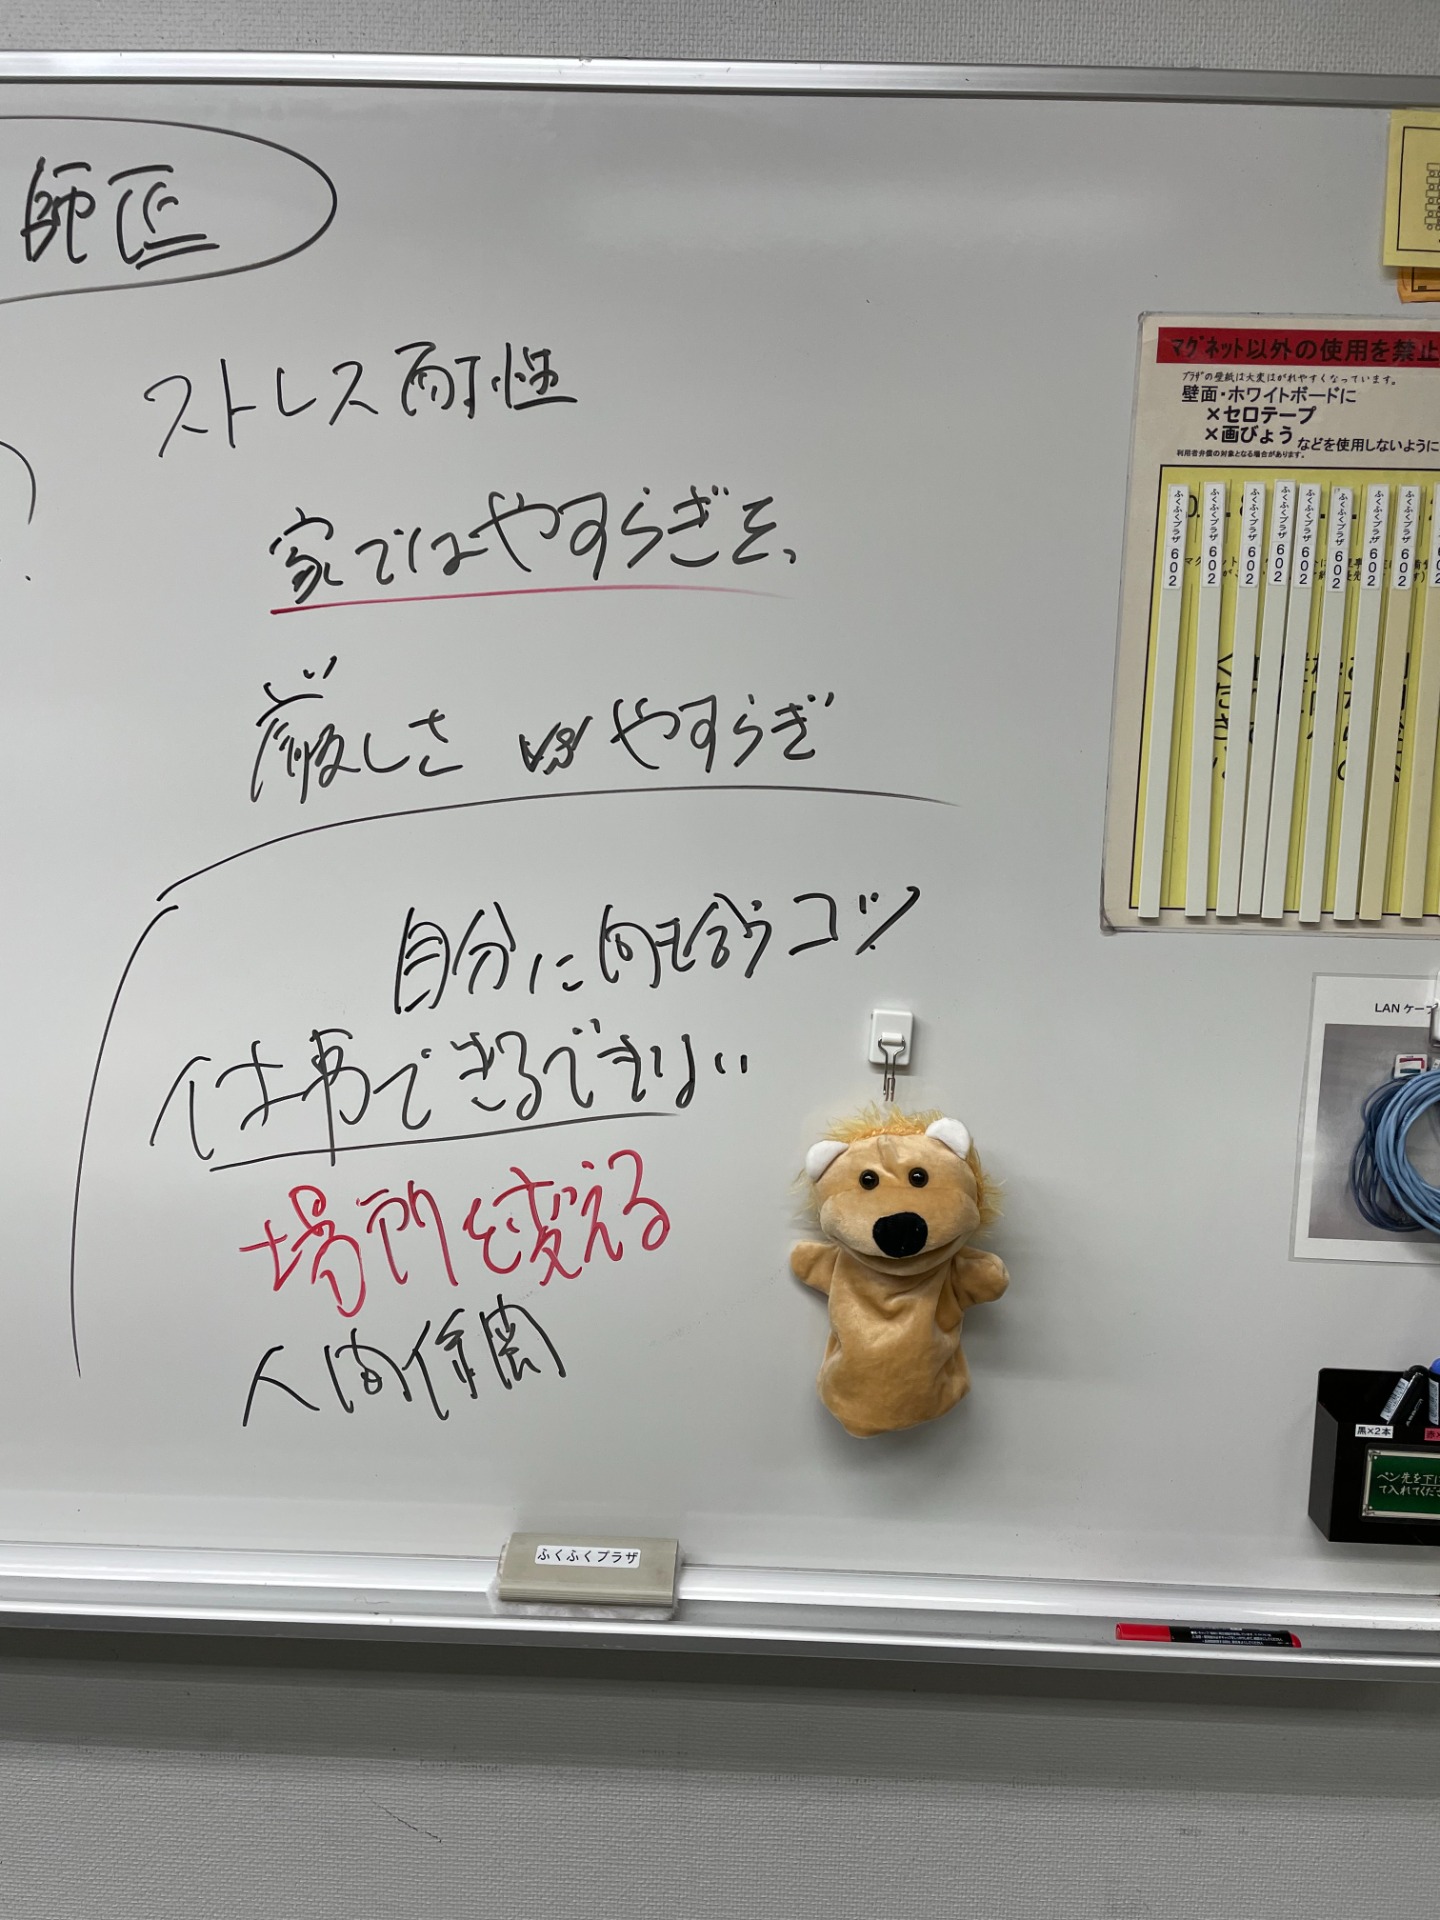 師匠
ストレス耐性
家ではやすらぎを、
厳しさ やすらぎ
自分に向き合うコツ
仕事できるできない
場所を変える
人間係関
マグネット以外の使用を禁止
プラザの壁紙は大変はがれやすくなっています。
壁面・ホワイトボードに
×セロテープ
×画びょう などを使用しないように
利用者弁償の対象となる場合があります。
ふくふくプラザ 602
ふくふくプラザ 602
ふくふくプラザ 602
ふくふくプラザ 602
ふくふくプラザ 602
ふくふくプラザ 602
ふくふくプラザ 602
ふくふくプラザ 602
602
LAN ケーブ
黒×2本
赤×
ペン先を下げ
て入れてくださ
ふくふくプラザ